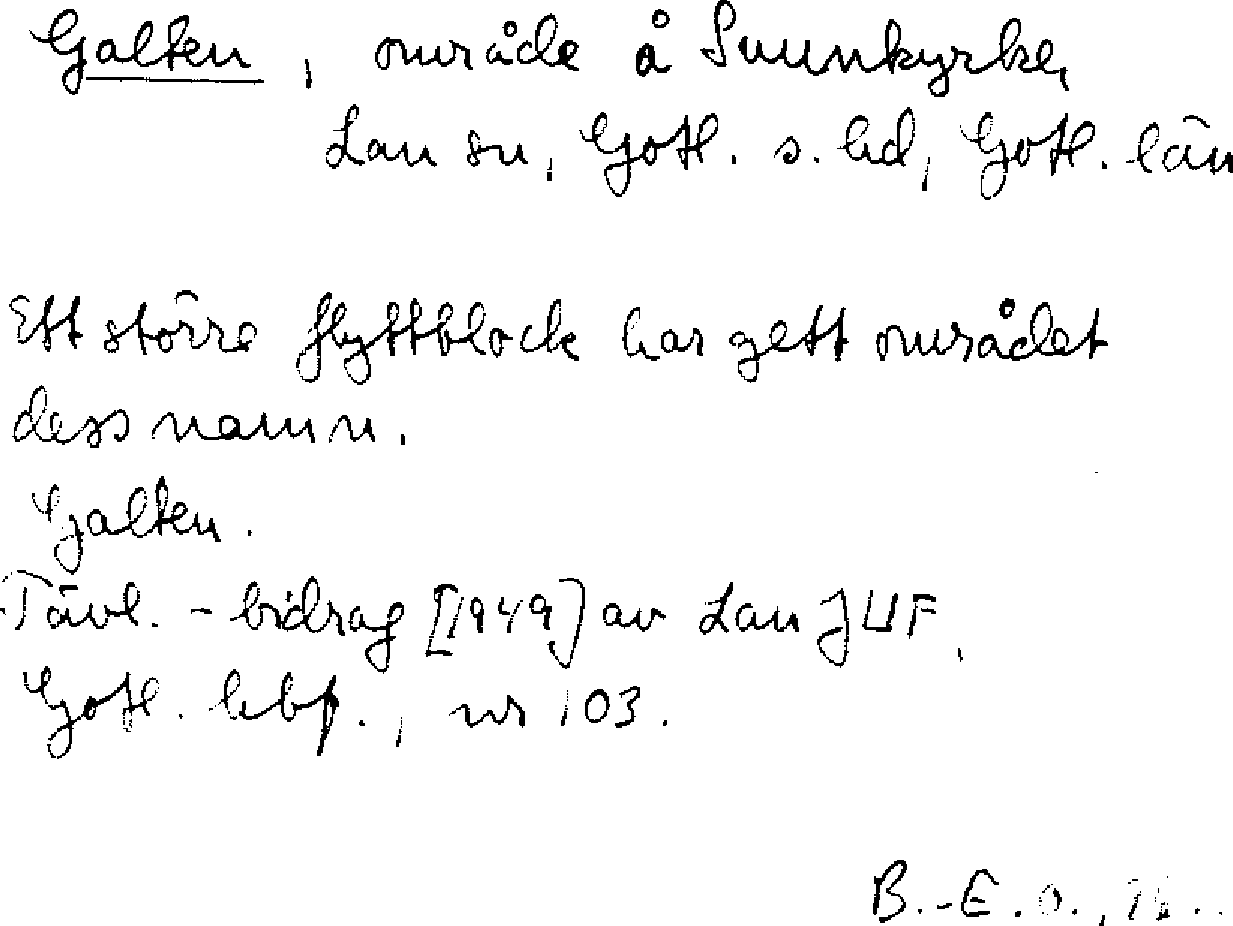 Galten, område å Snunkyrke,
Lau sn, Gotl. s. hd, Gotl. län
Ett större flyttblock har gett området
dess namn.
Galten.
Tävl. - bidrag [1949] av Lau JUF,
Gotl. hbf., nr 103.
B.-E. O.,